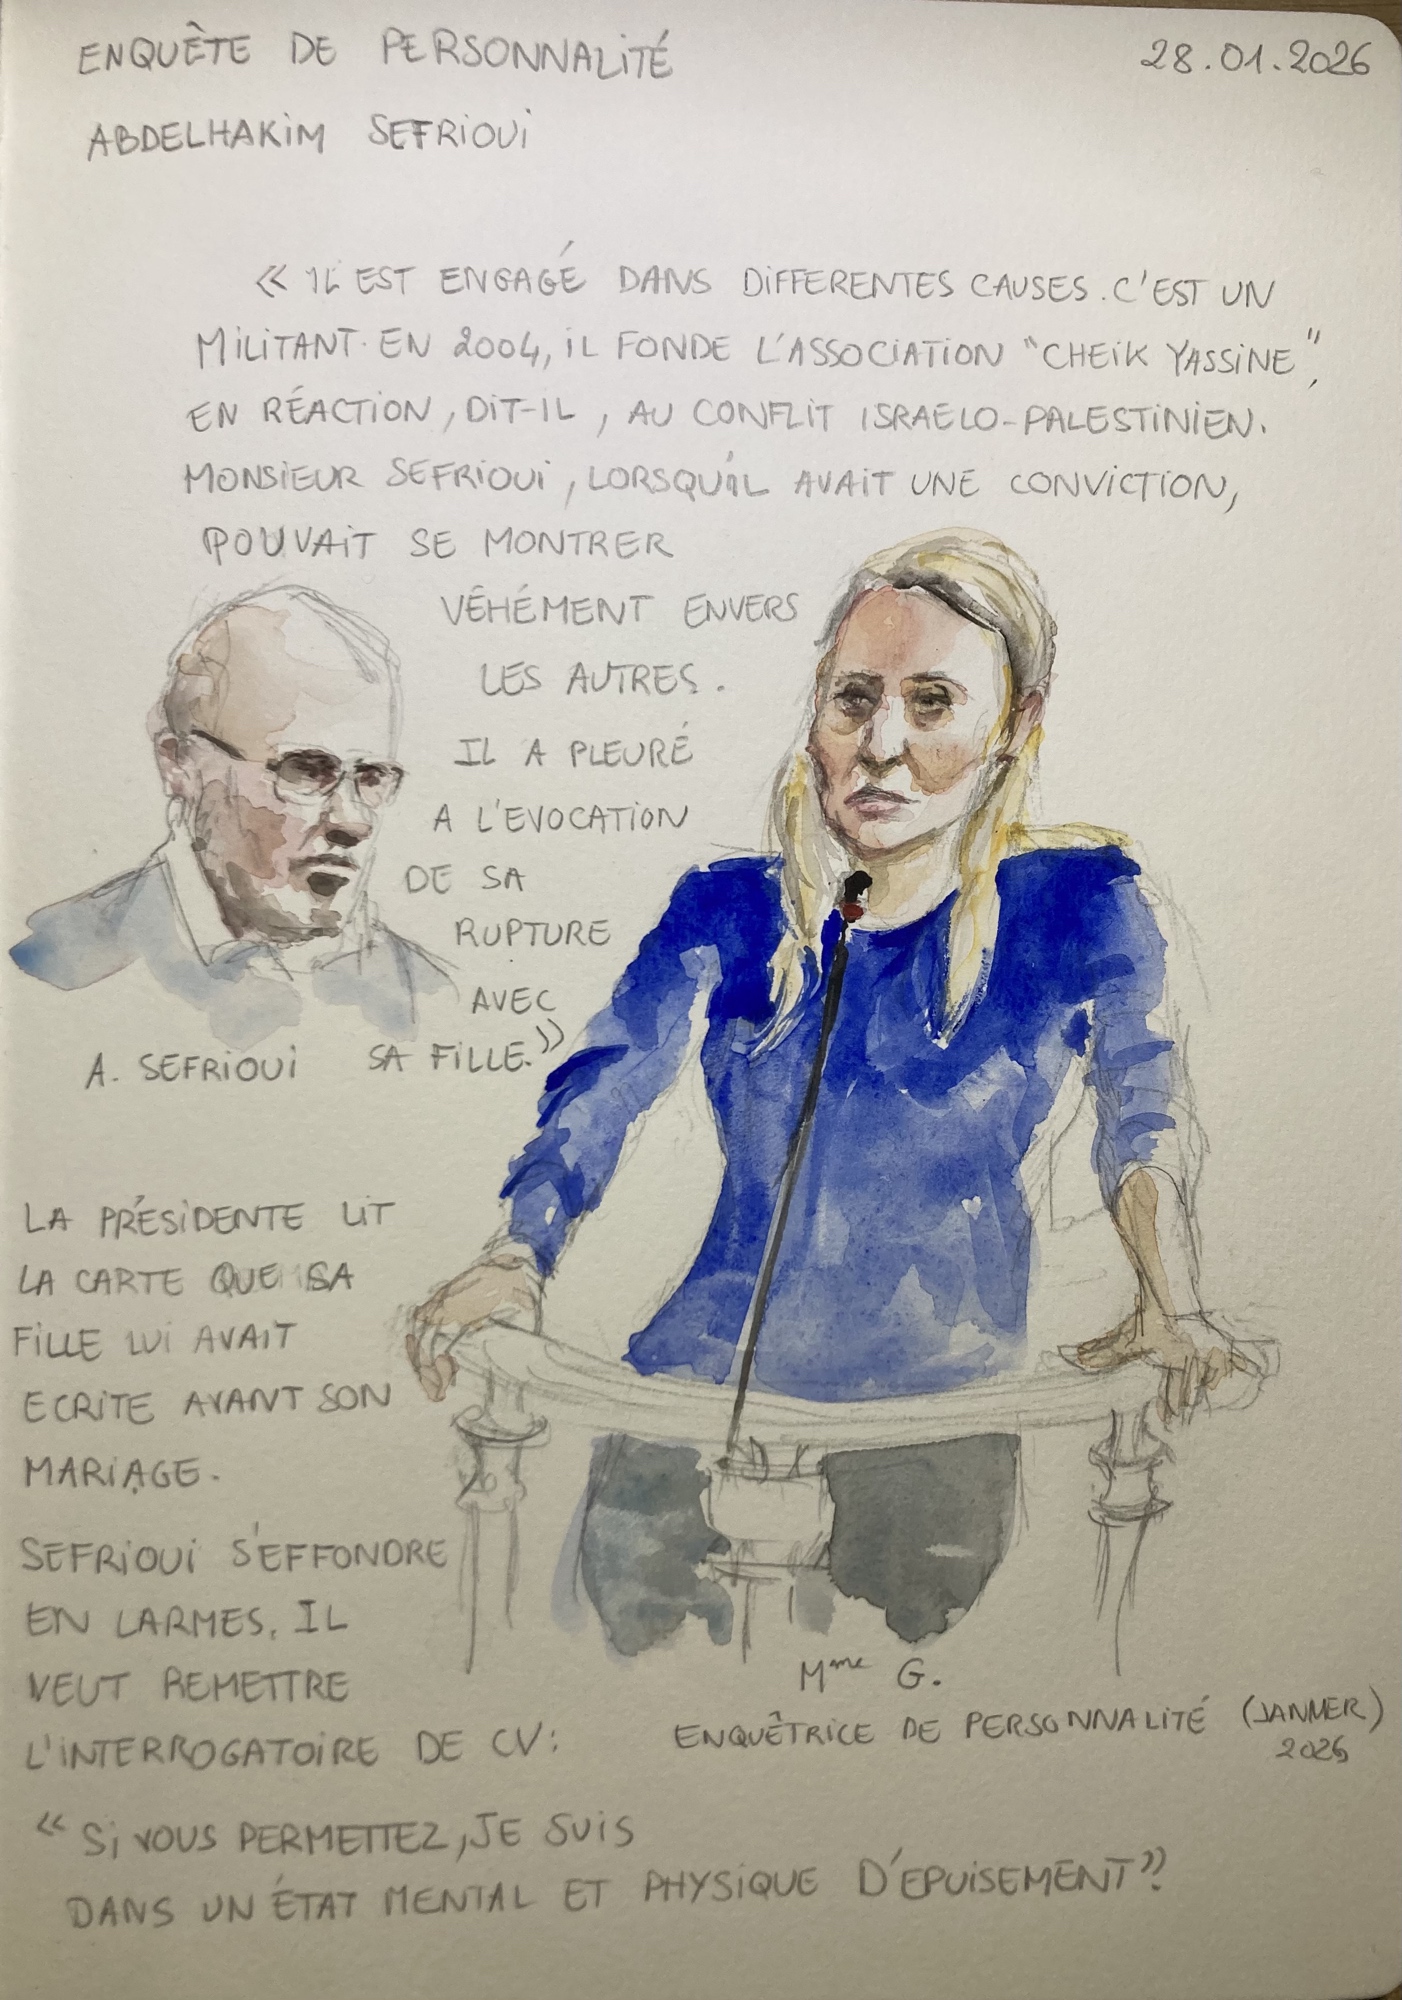 ENQUÊTE DE PERSONNALITÉ
28.01.2026
ABDELHAKIM SEFRIOUI
« IL EST ENGAGÉ DANS DIFFERENTES CAUSES. C'EST UN
MILITANT. EN 2004, IL FONDE L'ASSOCIATION "CHEIK YASSINE",
EN RÉACTION, DIT-IL, AU CONFLIT ISRAELO-PALESTINIEN.
MONSIEUR SEFRIOUI, LORSQU'IL AVAIT UNE CONVICTION,
POUVAIT SE MONTRER
VÉHÉMENT ENVERS
LES AUTRES.
IL A PLEURÉ
A L'EVOCATION
DE SA
RUPTURE
AVEC
SA FILLE.»
A. SEFRIOUI
LA PRÉSIDENTE LIT
LA CARTE QUE SA
FILLE LUI AVAIT
ECRITE AVANT SON
MARIAGE.
SEFRIOUI S'EFFONDRE
EN LARMES, IL
VEUT REMETTRE
L'INTERROGATOIRE DE CV:
« SI VOUS PERMETTEZ, JE SUIS
DANS UN ÉTAT MENTAL ET PHYSIQUE D'EPUISEMENT».
Mme G.
ENQUÊTRICE DE PERSONNALITÉ (JANVIER)
2026